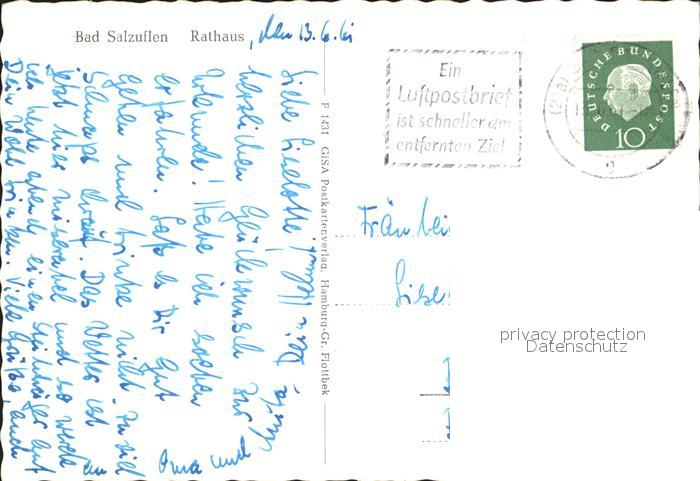 Bad Salzuflen Rathaus, den 13.6.61
Liebe Liselotte!
herzlichen Glückwunsch zur
Urkunde! Habe ich soeben
erfahren. Laß es Dir gut
gehen und trinke nicht zu viel
Schnaps drauf. Das Wetter ist
jetzt hier miserabel und so werde
ich heute abend einen Steinhäger auf
Dein Wohl trinken. Viele Grüße auch
an Oma und
F 1431 GiSA Postkartenverlag, Hamburg-Gr. Flottbek
Ein
Luftpostbrief
ist schneller am
entfernten Ziel
DEUTSCHE BUNDESPOST
10
Fräulei
Lise
privacy protection
Datenschutz